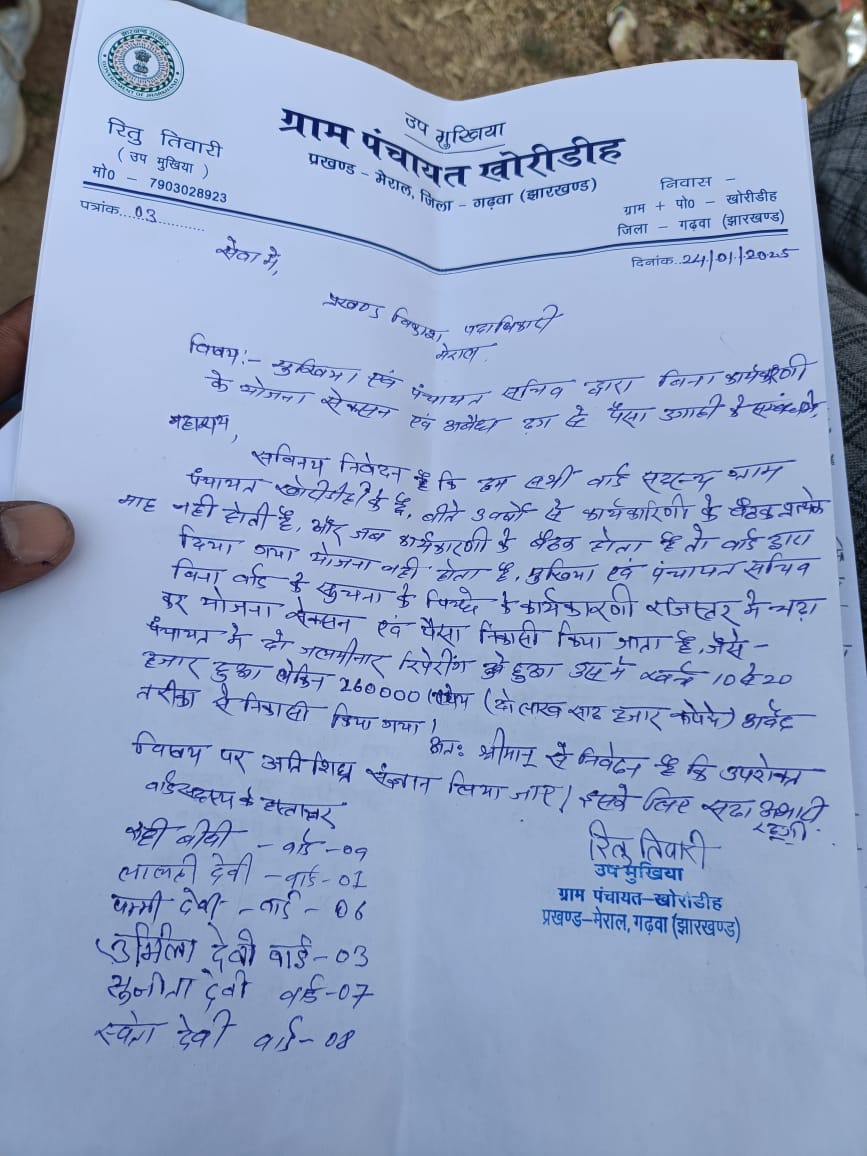 झारखण्ड सरकार
GOVERNMENT OF JHARKHAND
उप मुखिया
ग्राम पंचायत खोरीडीह
प्रखण्ड - मेराल, जिला - गढ़वा (झारखण्ड)
रितु तिवारी
( उप मुखिया )
मो0 - 7903028923
निवास -
ग्राम + पो0 - खोरीडीह
जिला - गढ़वा (झारखण्ड)
पत्रांक...03...........
दिनांक..24/01/2025
सेवा में,
प्रखण्ड विकास पदाधिकारी
मेराल
विषय:- मुखिया एवं पंचायत सचिव द्वारा बिना कार्यकारणी
के योजना सेक्सन एवं अवैध ढंग से पैसा उगाही के सम्बंध में,
महाशय,
सविनय निवेदन है कि हम सभी वार्ड सदस्य ग्राम
पंचायत खोरीडीह के है, बीते 3 वर्षो से कार्यकारिणी के बैठक प्रत्येक
माह नही होती है, और जब कार्यकारणी के बैठक होता है तो वार्ड द्वारा
दिया गया योजना नही होता है, मुखिया एवं पंचायत सचिव
बिना वार्ड के सुचना के के कार्यकारणी रजिस्टर मे चढ़ा
कर योजना सेक्सन एवं पैसा निकासी किया जाता है, जैसे -
पंचायत मे दो जलमीनार रिपेरींग हुआ उसमे खर्च 10 से 20
हजार हुआ लेकिन 260000 (दो लाख साठ हजार रूपये)
तरीका से निकासी किया गया।
अतः श्रीमान् से निवेदन है कि उपरोक्त
विषय पर अति शिघ्र संज्ञान लिया जाए। इसके लिए सदा आभारी
रहूंगी.
वार्ड सदस्य के हस्ताक्षर
बीबी - वार्ड - 09
देवी - वार्ड - 01
देवी - वार्ड - 06
उर्मिला देवी वार्ड - 03
सुनीता देवी वार्ड - 07
स्वेता देवी वार्ड - 08
रितु तिवारी
उप मुखिया
ग्राम पंचायत-खोरीडीह
प्रखण्ड-मेराल, गढ़वा (झारखण्ड)